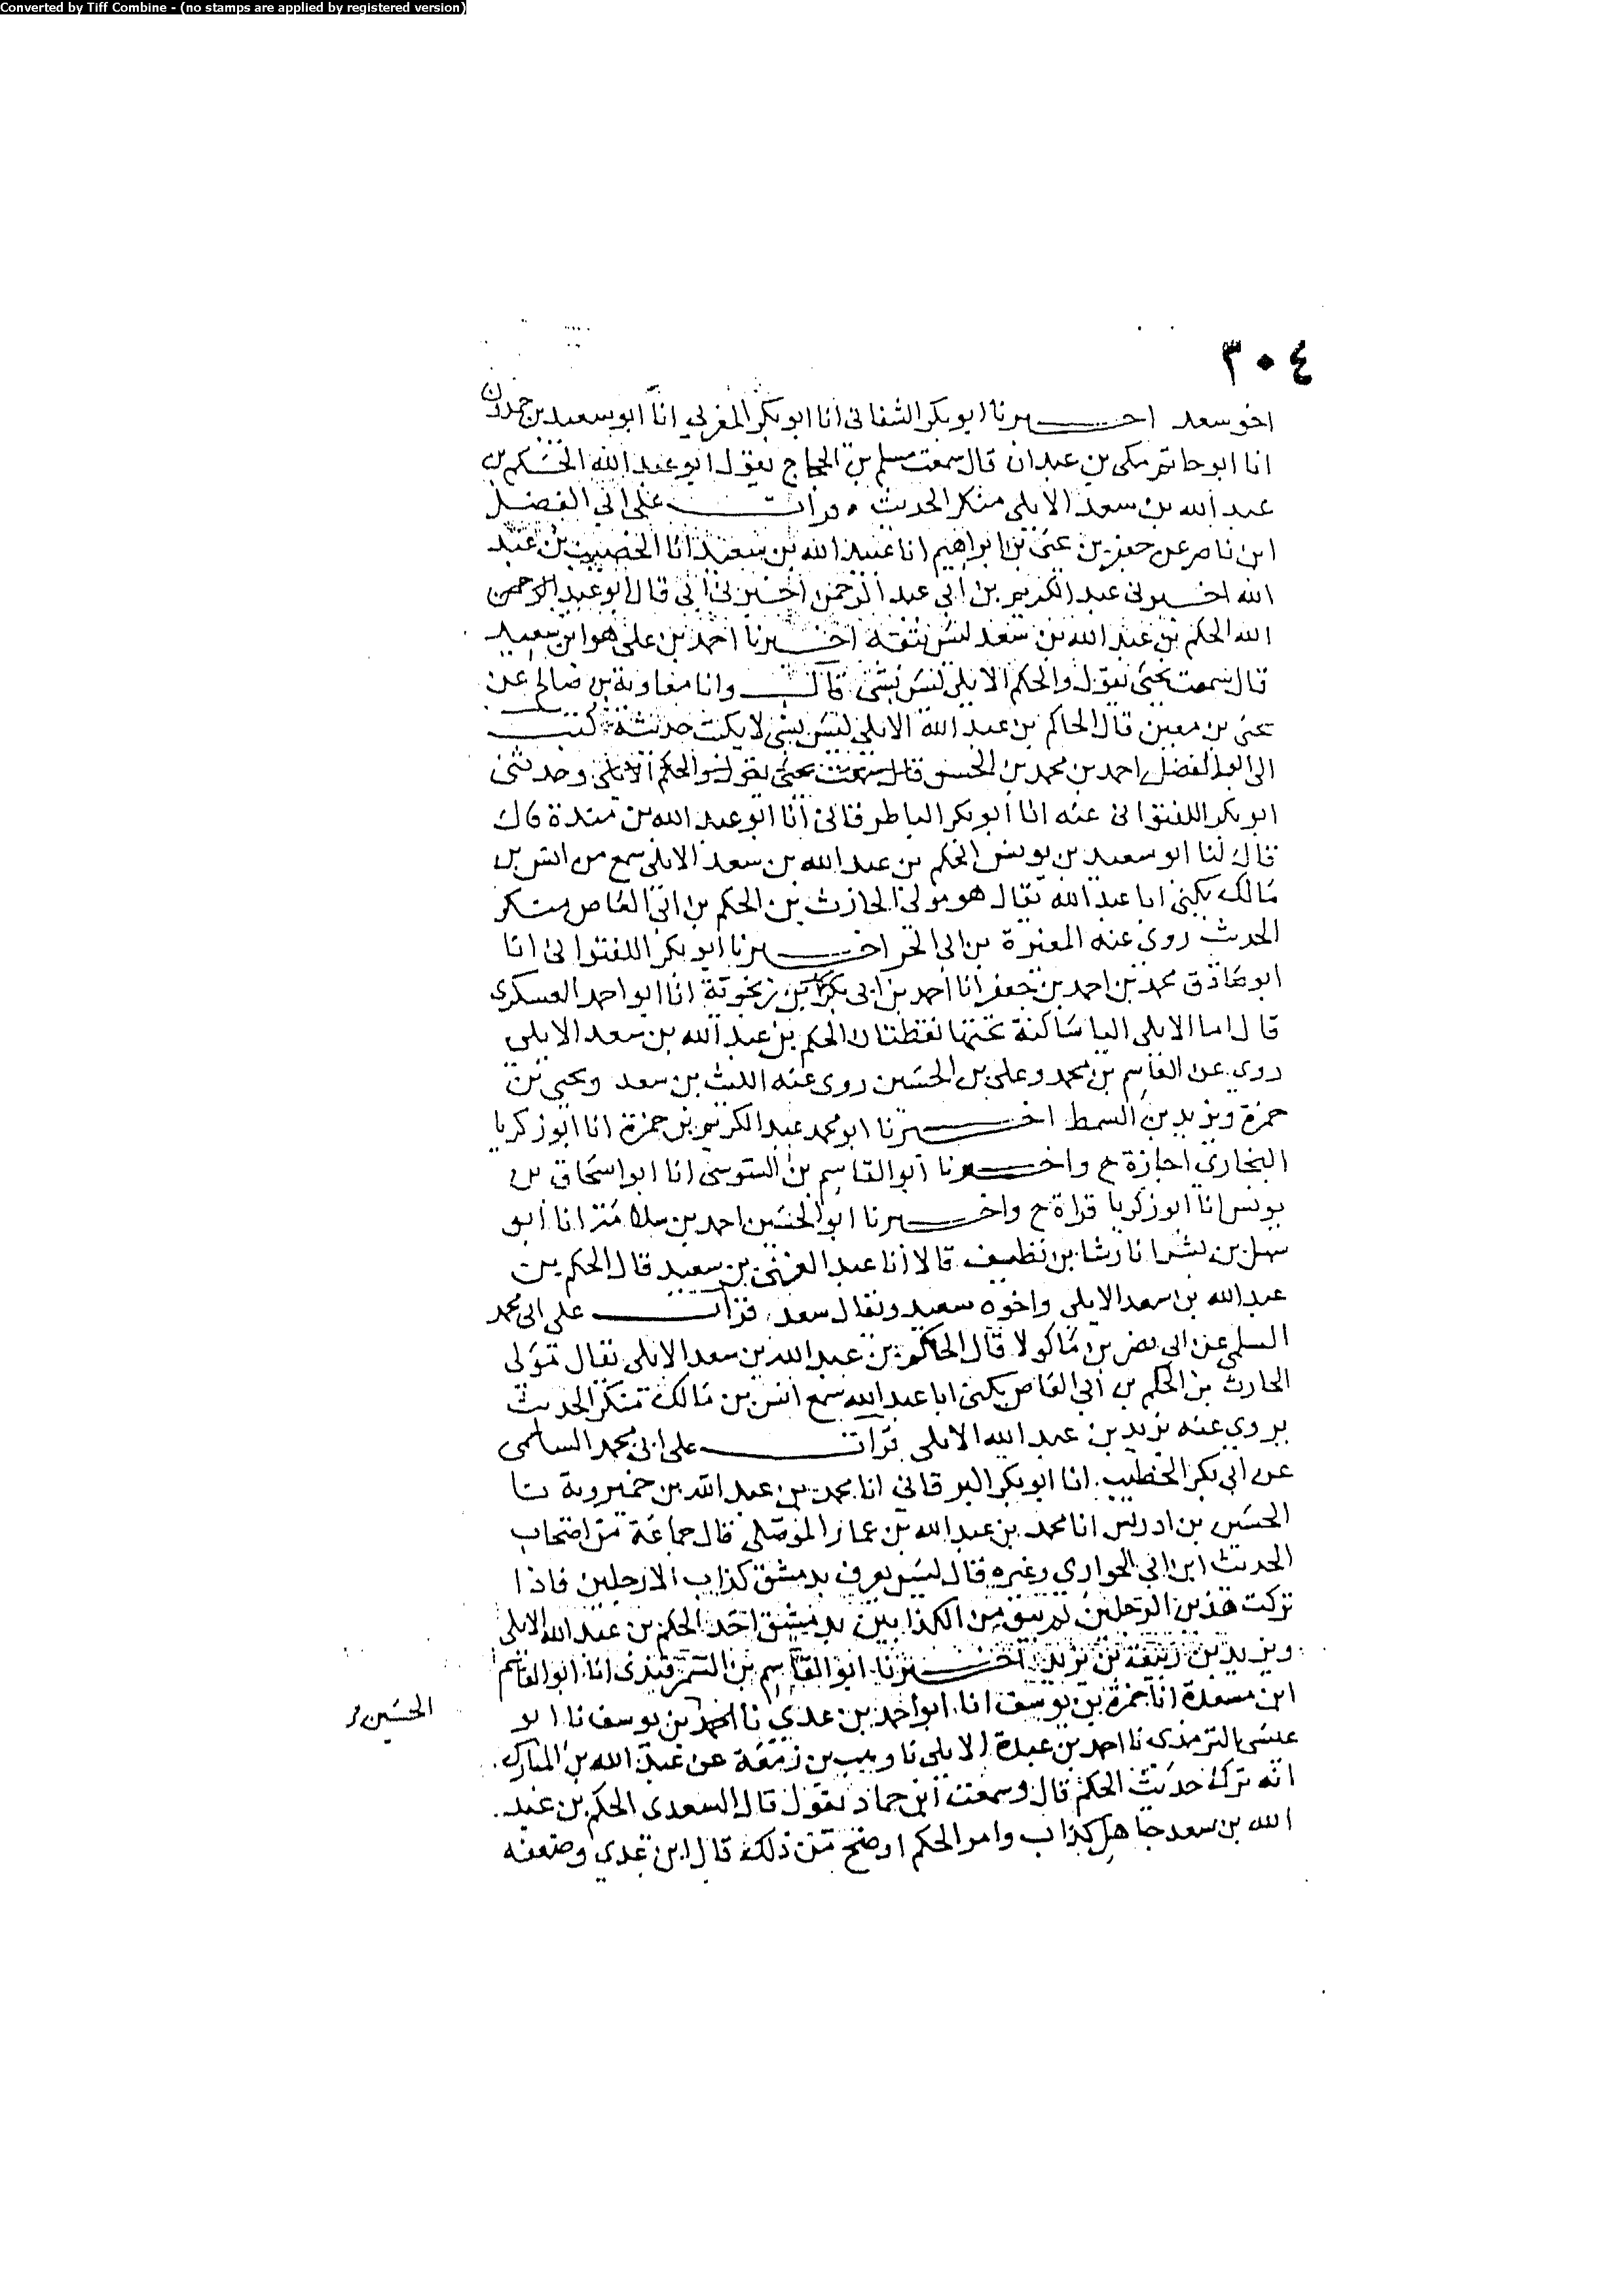 Converted by Tiff Combine - (no stamps are applied by registered version)
٣٠٤
اخو سعد اخبرنا ابو بكر الشقاني انا ابو بكر المغربي انا ابو سعيد بن حمدون
انا ابو حاتم مكي بن عبدان قال سمعت مسلم بن الحجاج يقول ابو عبد الله الحكم بن
عبد الله بن سعد الايلي منكر الحديث قرات على ابي الفضل
ابن ناصر عن جعفر بن يحيى بن ابراهيم انا عبيد الله بن سعيد انا الخصيب بن عبد
الله اخبرني عبد الكريم بن ابي عبد الرحمن اخبرني ابي قال ابو عبد الرحمن
الله الحكم بن عبد الله بن سعد ليس بثقة اخبرنا احمد بن علي هو ابن سعيد
قال سمعت يحيى يقول والحكم الايلي ليس بشي قال وانا معاوية بن صالح عن
يحيى بن معين قال الحاكم بن عبد الله الايلي ليس بشي لا يكتب حديثه كتب
الي ابو الفضل احمد بن محمد بن الحسن وحدثني
ابو بكر اللفتواني عنه انا ابو بكر الباطرقاني انا ابو عبد الله بن مندة قال
قال لنا ابو سعيد بن يونس الحكم بن عبد الله بن سعد الايلي سمع من انس بن
مالك يكنى ابا عبد الله يقال هو مولى الحارث بن الحكم بن ابي العاص منكر
الحديث روى عنه المغيرة بن ابي الحر اخبرنا ابو بكر اللفتواني انا
ابو صادق محمد بن احمد بن جعفر انا احمد بن ابي بكر بن زنجوية انا ابو احمد العسكري
قال اما الايلي اليا ساكنة تحتها نقطتان الحكم بن عبد الله بن سعد الايلي
روى عن القاسم بن محمد وعلي بن الحسين روى عنه الليث بن سعد ويحيى بن
حمزة ويزيد بن السمط اخبرنا ابو محمد عبد الكريم بن حمزة انا ابو زكريا
البخاري اجازة ح واخبرنا ابو القاسم بن السوسي انا ابو اسحاق بن
يونس انا ابو زكريا قراة ح واخبرنا ابو الحسين احمد بن سلامة انا ابو
سهل بن بشر انا رشا بن نظيف قالا انا عبد الغني بن سعيد قال الحكم بن
عبد الله بن سعد الايلي واخوه سعيد ويقال سعد قرات على ابي محمد
السلمي عن ابي نصر بن ماكولا قال الحاكم بن عبد الله بن سعد الايلي يقال مولى
الحارث بن الحكم بن ابي العاص يكنى ابا عبد الله سمع انس بن مالك منكر الحديث
يروي عنه يزيد بن عبد الله الايلي قرات على ابي محمد السلمى
عن ابي بكر الخطيب انا ابو بكر البرقاني انا محمد بن عبد الله بن خميروية نا
الحسين بن ادريس انا محمد بن عبد الله بن عمار الموصلي قال جماعة من اصحاب
الحديث ابن ابي الحواري وغيره قال ليس يعرف بدمشق كذاب الا رجلين فاذا
تركت هذين الرجلين لم يبق من الكذابين بدمشق احد الحكم بن عبد الله الايلي
ويزيد بن ربيعة بن يزيد اخبرنا ابو القاسم بن السمرقندي انا ابو القاسم
ابن مسعدة انا حمزة بن يوسف انا ابو احمد بن عدي نا محمد بن يوسف نا ابو
الحسين
عيسى الترمذي نا احمد بن عبدة الايلي نا وهب بن زمعة عن عبد الله بن المبارك
انه ترك حديث الحكم قال وسمعت ابن حماد يقول قال السعدي الحكم بن عبد
الله بن سعد جاهل كذاب وامر الحكم اوضح من ذلك قال ابن عدي وضعفه